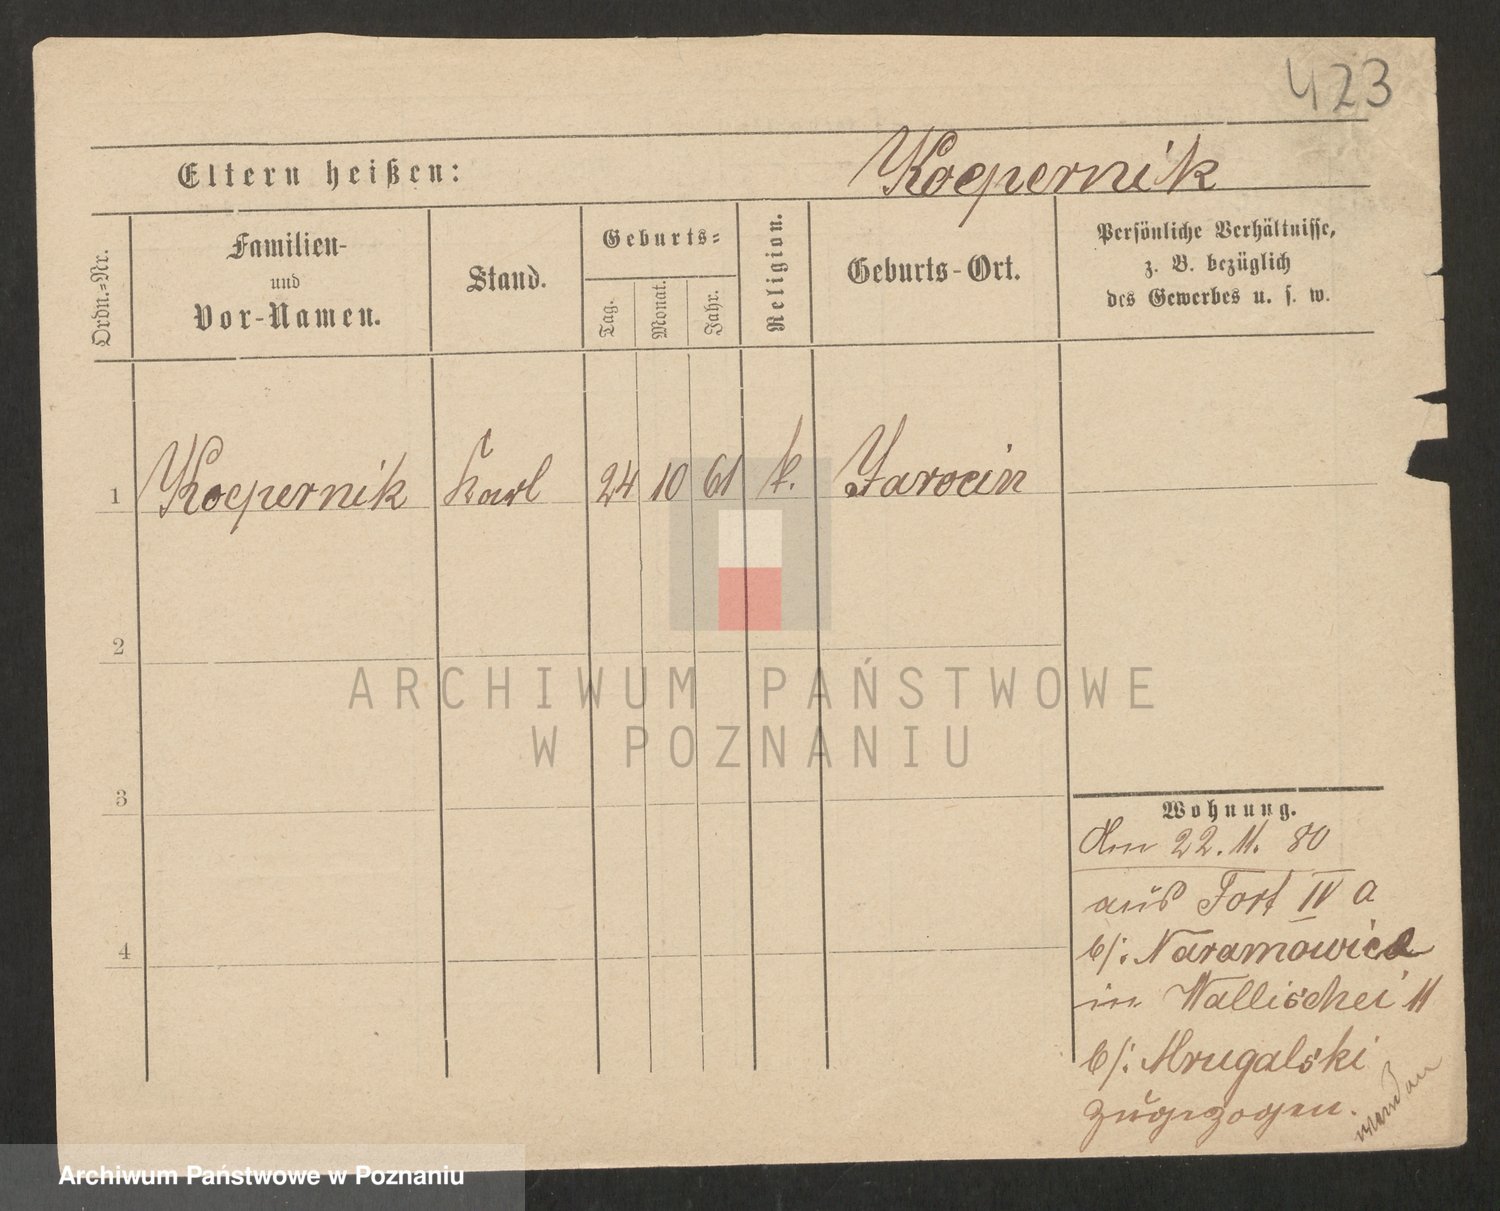 423
Eltern heißen: Koepernik
Ordn.-Nr.
Familien-
und
Vor-Namen.
Stand.
Geburts-
Tag.
Monat.
Jahr.
Religion.
Geburts-Ort.
Persönliche Verhältnisse,
z. B. bezüglich
des Gewerbes u. s. w.
1 Koepernik Karl 24 10 61 k. Jarocin
2
3
4
Wohnung.
den 22. 11. 80
aus Fort IV a
b/: Naramowice
in Wallischei 11
b/: Mrugalski
zugezogen.
ARCHIWUM PAŃSTWOWE
W POZNANIU
Archiwum Państwowe w Poznaniu